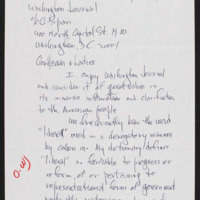 Washington Journal
C-Span
400 North Capital St. N.W.
Washington DC 2001
Gentlemen &
I enjoy Washington Journal
and consider it of great value in
its immense information and clarification
to the American people
the word
"liberal" used in a derogatory manner
by callers in. My dictionary defines
"liberal" as favorable to progress or
reform, of or pertaining to
representational forms of government